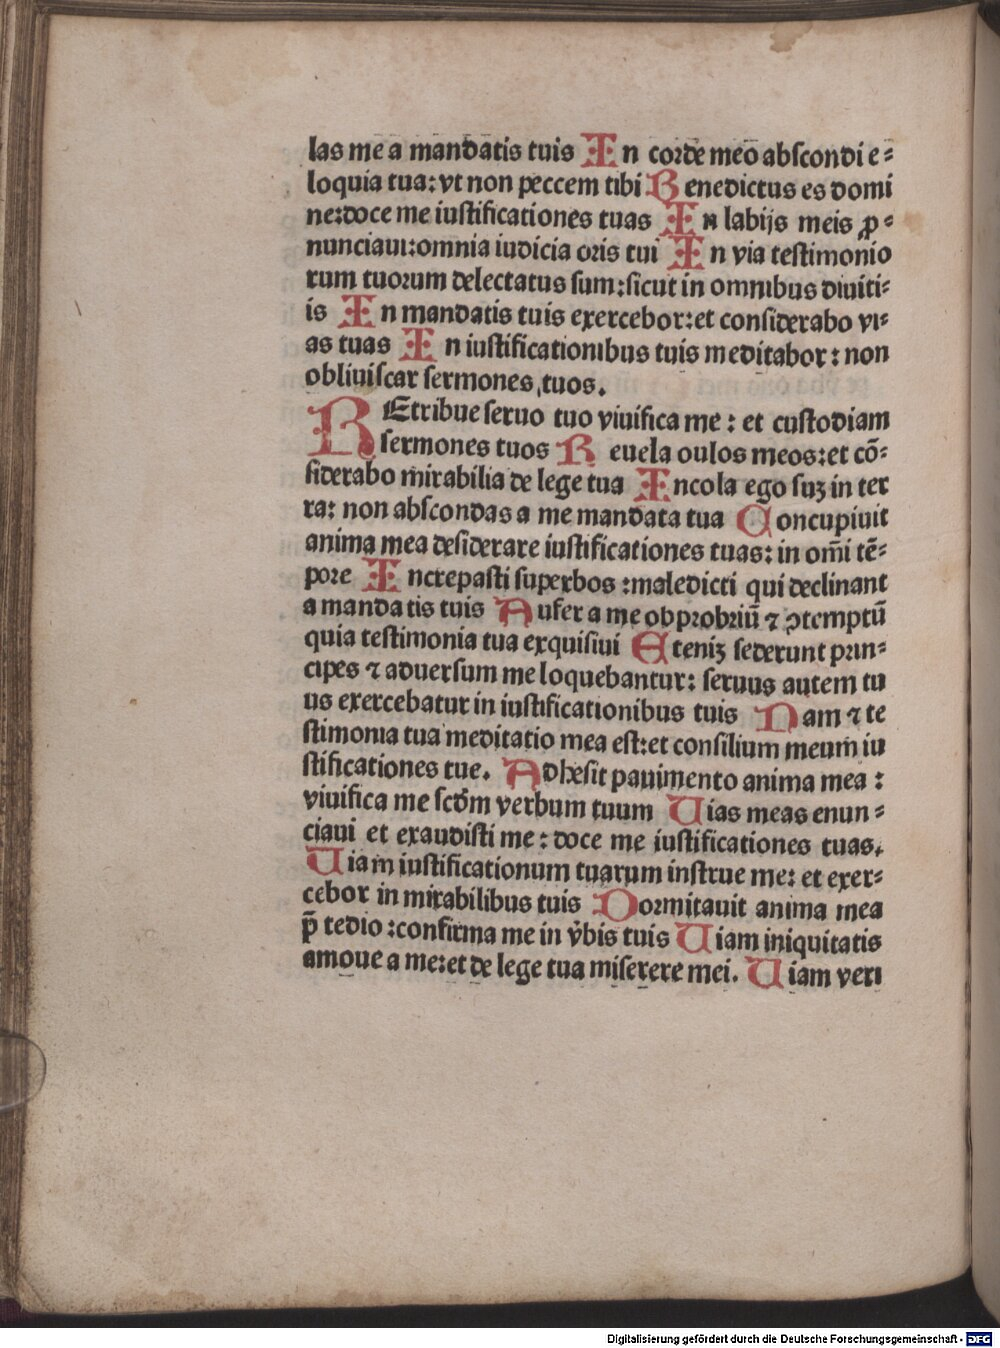 las me a mandatis tuis In corde meo abscondi e⸗
loquia tua: vt non peccem tibi Benedictus es domi
ne: doce me iustificationes tuas In labijs meis ꝓ⸗
nunciaui: omnia iudicia oris tui In via testimonio
rum tuorum delectatus sum: sicut in omnibus diuiti⸗
is In mandatis tuis exercebor: et considerabo vi⸗
as tuas In iustificationibus tuis meditabor: non
obliuiscar sermones tuos.
REtribue seruo tuo viuifica me: et custodiam
sermones tuos Reuela oulos meos: et cō⸗
siderabo mirabilia de lege tua Incola ego suꝫ in ter
ra: non abscondas a me mandata tua Concupiuit
anima mea desiderare iustificationes tuas: in om̄i tē⸗
pore Increpasti superbos: maledicti qui declinant
a mandatis tuis Aufer a me obprobriū ⁊ ꝯtemptū
quia testimonia tua exquisiui Eteniꝫ sederunt prin⸗
cipes ⁊ aduersum me loquebantur: seruus autem tu
us exercebatur in iustificationibus tuis Nam ⁊ te
stimonia tua meditatio mea est: et consilium meum iu
stificationes tue. Adhesit pauimento anima mea:
viuifica me scđm verbum tuum Uias meas enun⸗
ciaui et exaudisti me: doce me iustificationes tuas.
Uiam iustificationum tuarum instrue me: et exer⸗
cebor in mirabilibus tuis Dormitauit anima mea
p̄ tedio: confirma me in v̄bis tuis Uiam iniquitatis
amoue a me: et de lege tua miserere mei. Uiam veri
Digitalisierung gefördert durch die Deutsche Forschungsgemeinschaft - DFG